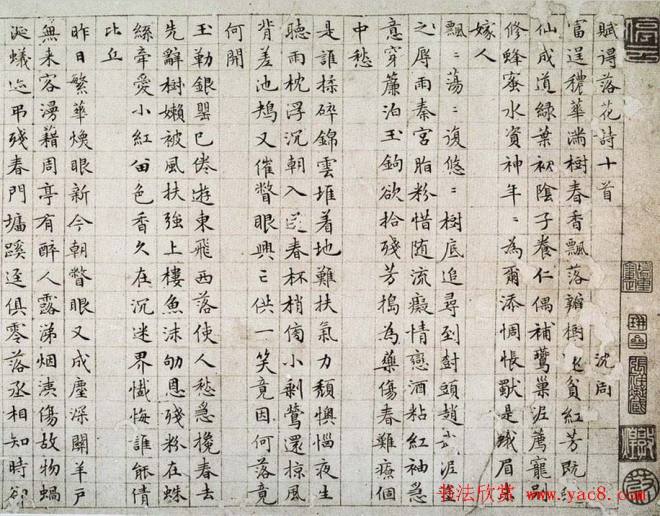 賦得落花詩十首
沈周
富逞穠華滿樹春香飄落瓣樹還貧紅芳既蛻
仙成道綠葉初陰子養仁偶補鶯巢泥薦寵別
修蜂蜜水資神年〻為爾添惆悵獨是蛾眉未
嫁人
飄〻蕩〻復悠〻樹底追尋到樹頭趙武泥塗
之辱雨秦宮脂粉惜随流癡情戀酒粘紅袖急
意穿簾泊玉鉤欲拾殘芳搗為藥傷春難療個
中愁
是誰揉碎錦雲堆着地難扶氣力頹懊惱夜生
聽雨枕浮沉朝入送春杯梢傍小剩鶯還掠風
背差池鷰又催瞥眼興〻供一笑竟因何落竟
何開
玉勒銀罌已倦遊東飛西落使人愁急攙春去
先辭樹嬾被風扶強上樓魚沫劬恩殘粉在蛛
絲牽愛小紅留色香久在沉迷界懺悔誰能倩
比丘
昨日繁華煥眼新今朝瞥眼又成塵深關羊戶
無来客漫藉周亭有醉人露涕烟洟傷故物蝸
涎蟻迹弔殘春門墻蹊逕俱零落丞相知時卻
书法欣赏 www.yac8.com